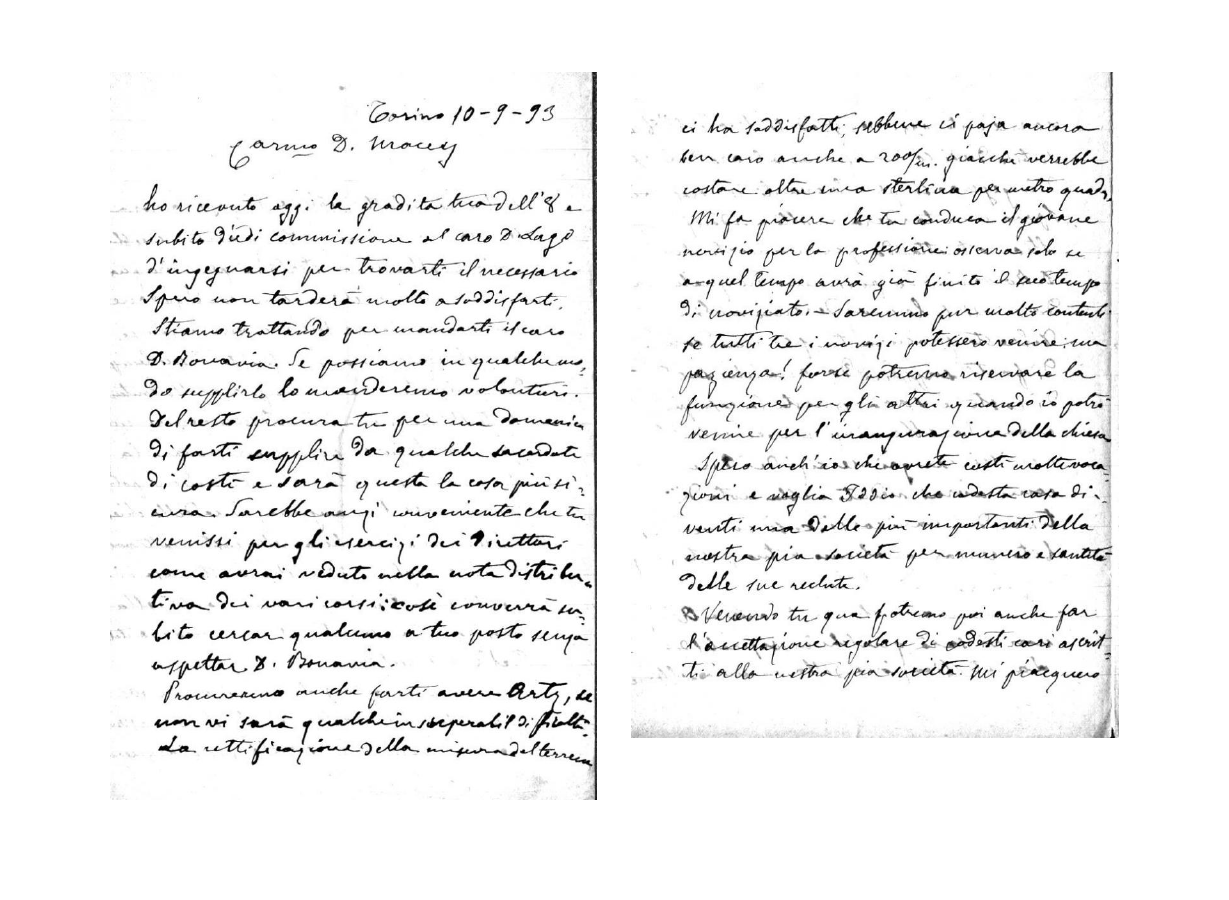 Torino 10-9-93
Carmo D. Macey
ho ricevuto oggi la gradita tua dell'8 e
subito diedi commissione al caro D. Lago
d'ingegnarsi per trovarti il necessario
Spero non tarderà molto a soddisfarti.
Stiamo trattando per mandarti il caro
D. Bonavia. Se possiamo in qualche mo-
do supplirlo lo manderemo volontieri.
Del resto procura tu per una domenica
di farti supplire da qualche sacerdote
di costì e sarà questa la cosa più si-
cura. Sarebbe anzi conveniente che tu
venissi per gli esercizi dei Direttori
come avrai veduto nella nota distribu-
tiva dei vari corsi: così converrà su-
bito cercar qualcuno a tuo posto senza
aspettar D. Bonavia.
Procureremo anche farti avere Artz, se
non vi sarà qualche insuperabil difficoltà.
La rettificazione della misura del terreno
ci ha soddisfatti, sebbene ci paja ancora
ben caro anche a 200/m. giacchè verrebbe
costare oltre una sterlina per metro quadr.
Mi fa piacere che tu conduca il giovane
novizio per la professione: osserva solo se
a quel tempo avrà già finito il suo tempo
di noviziato. - Saremmo pur molto contenti
se tutti tre i novizi potessero venire: ma
pazienza! forse potremo riservare la
funzione per gli altri quando io potrò
venire per l'inaugurazione della chiesa
Spero anch'io che avrete costì molte voca-
zioni e voglia Iddio che codesta casa di-
venti una delle più importanti della
nostra pia società per numero e santità
delle sue reclute.
Venendo tu qua potremo poi anche far
l'accettazione regolare di codesti cari ascrit-
ti alla nostra pia società. Mi piacquero